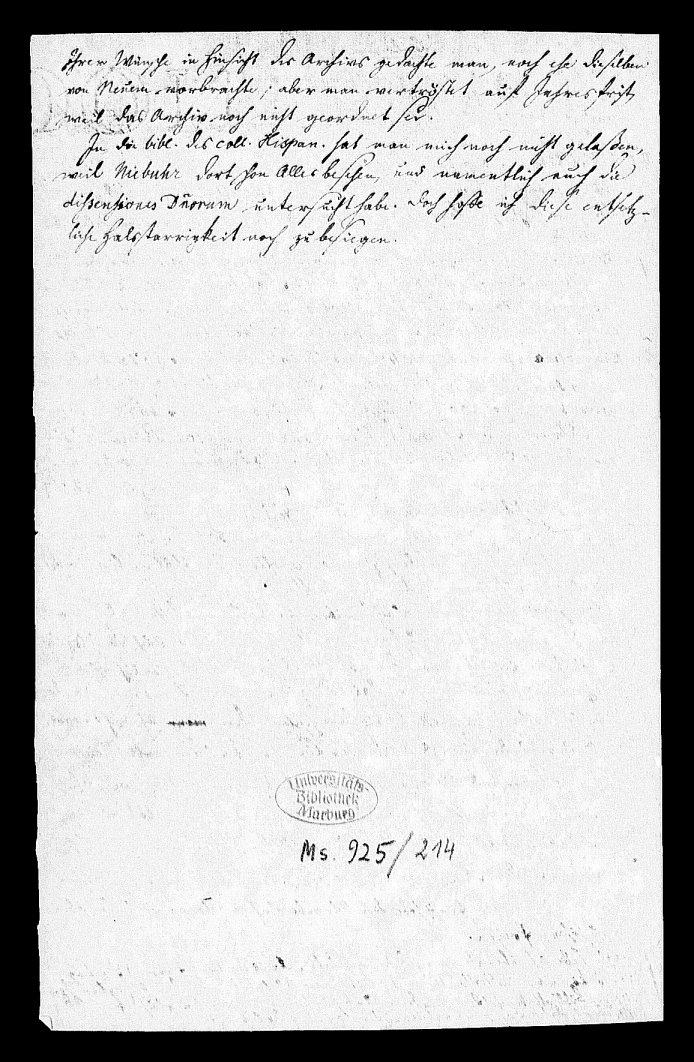 Ihrer Wünsche in Hinsicht des Archivs gedachte man, noch ehe dieselben
von Neuem vorbrachte; aber man vertröstet auf Jahresfrist,
weil das Archiv noch nicht geordnet sei.
In die bibl. des coll. Hispan. hat man mich noch nicht gelaßen,
weil Niebuhr dort schon Alles besehen, und namentlich auch die
dissensiones Dnorum untersucht habe. Doch hoffe ich diese entsetz-
liche Halsstarrigkeit noch zu besiegen.
Universitäts-
Bibliothek
Marburg
Ms. 925/214